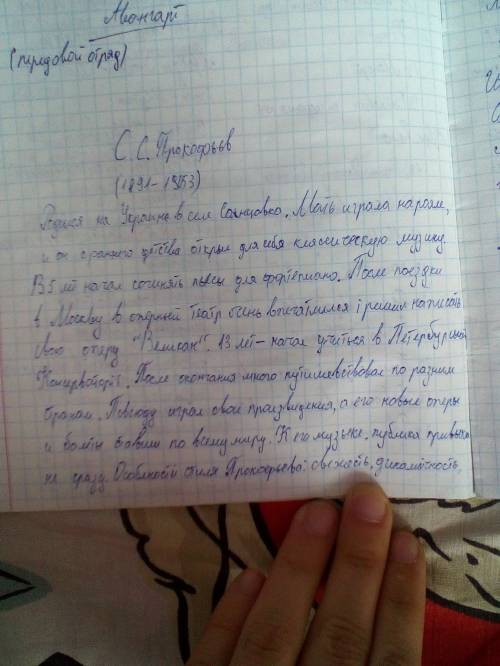 Авангард
(передовой отряд)
С. С. Прокофьев
(1891-1953)
Родился на Украине в селе Сонцовка. Мать играла на рояле,
и он с раннего детства открыл для себя классическую музыку.
В 5 лет начал сочинять пьесы для фортепиано. После поездки
в Москву в оперный театр очень впечатлился і решил написать
свою оперу "Великан". 13 лет - начал учиться в Петербургской
Консерваторії. После окончания много путишевствовал по разним
странам. Повсюду играл свои произведения, а его новые оперы
и балеты ставили по всему миру. К его музыке, публика привыкла
не сразу. Особеності стиля Прокофьева: свежость, динамічность,